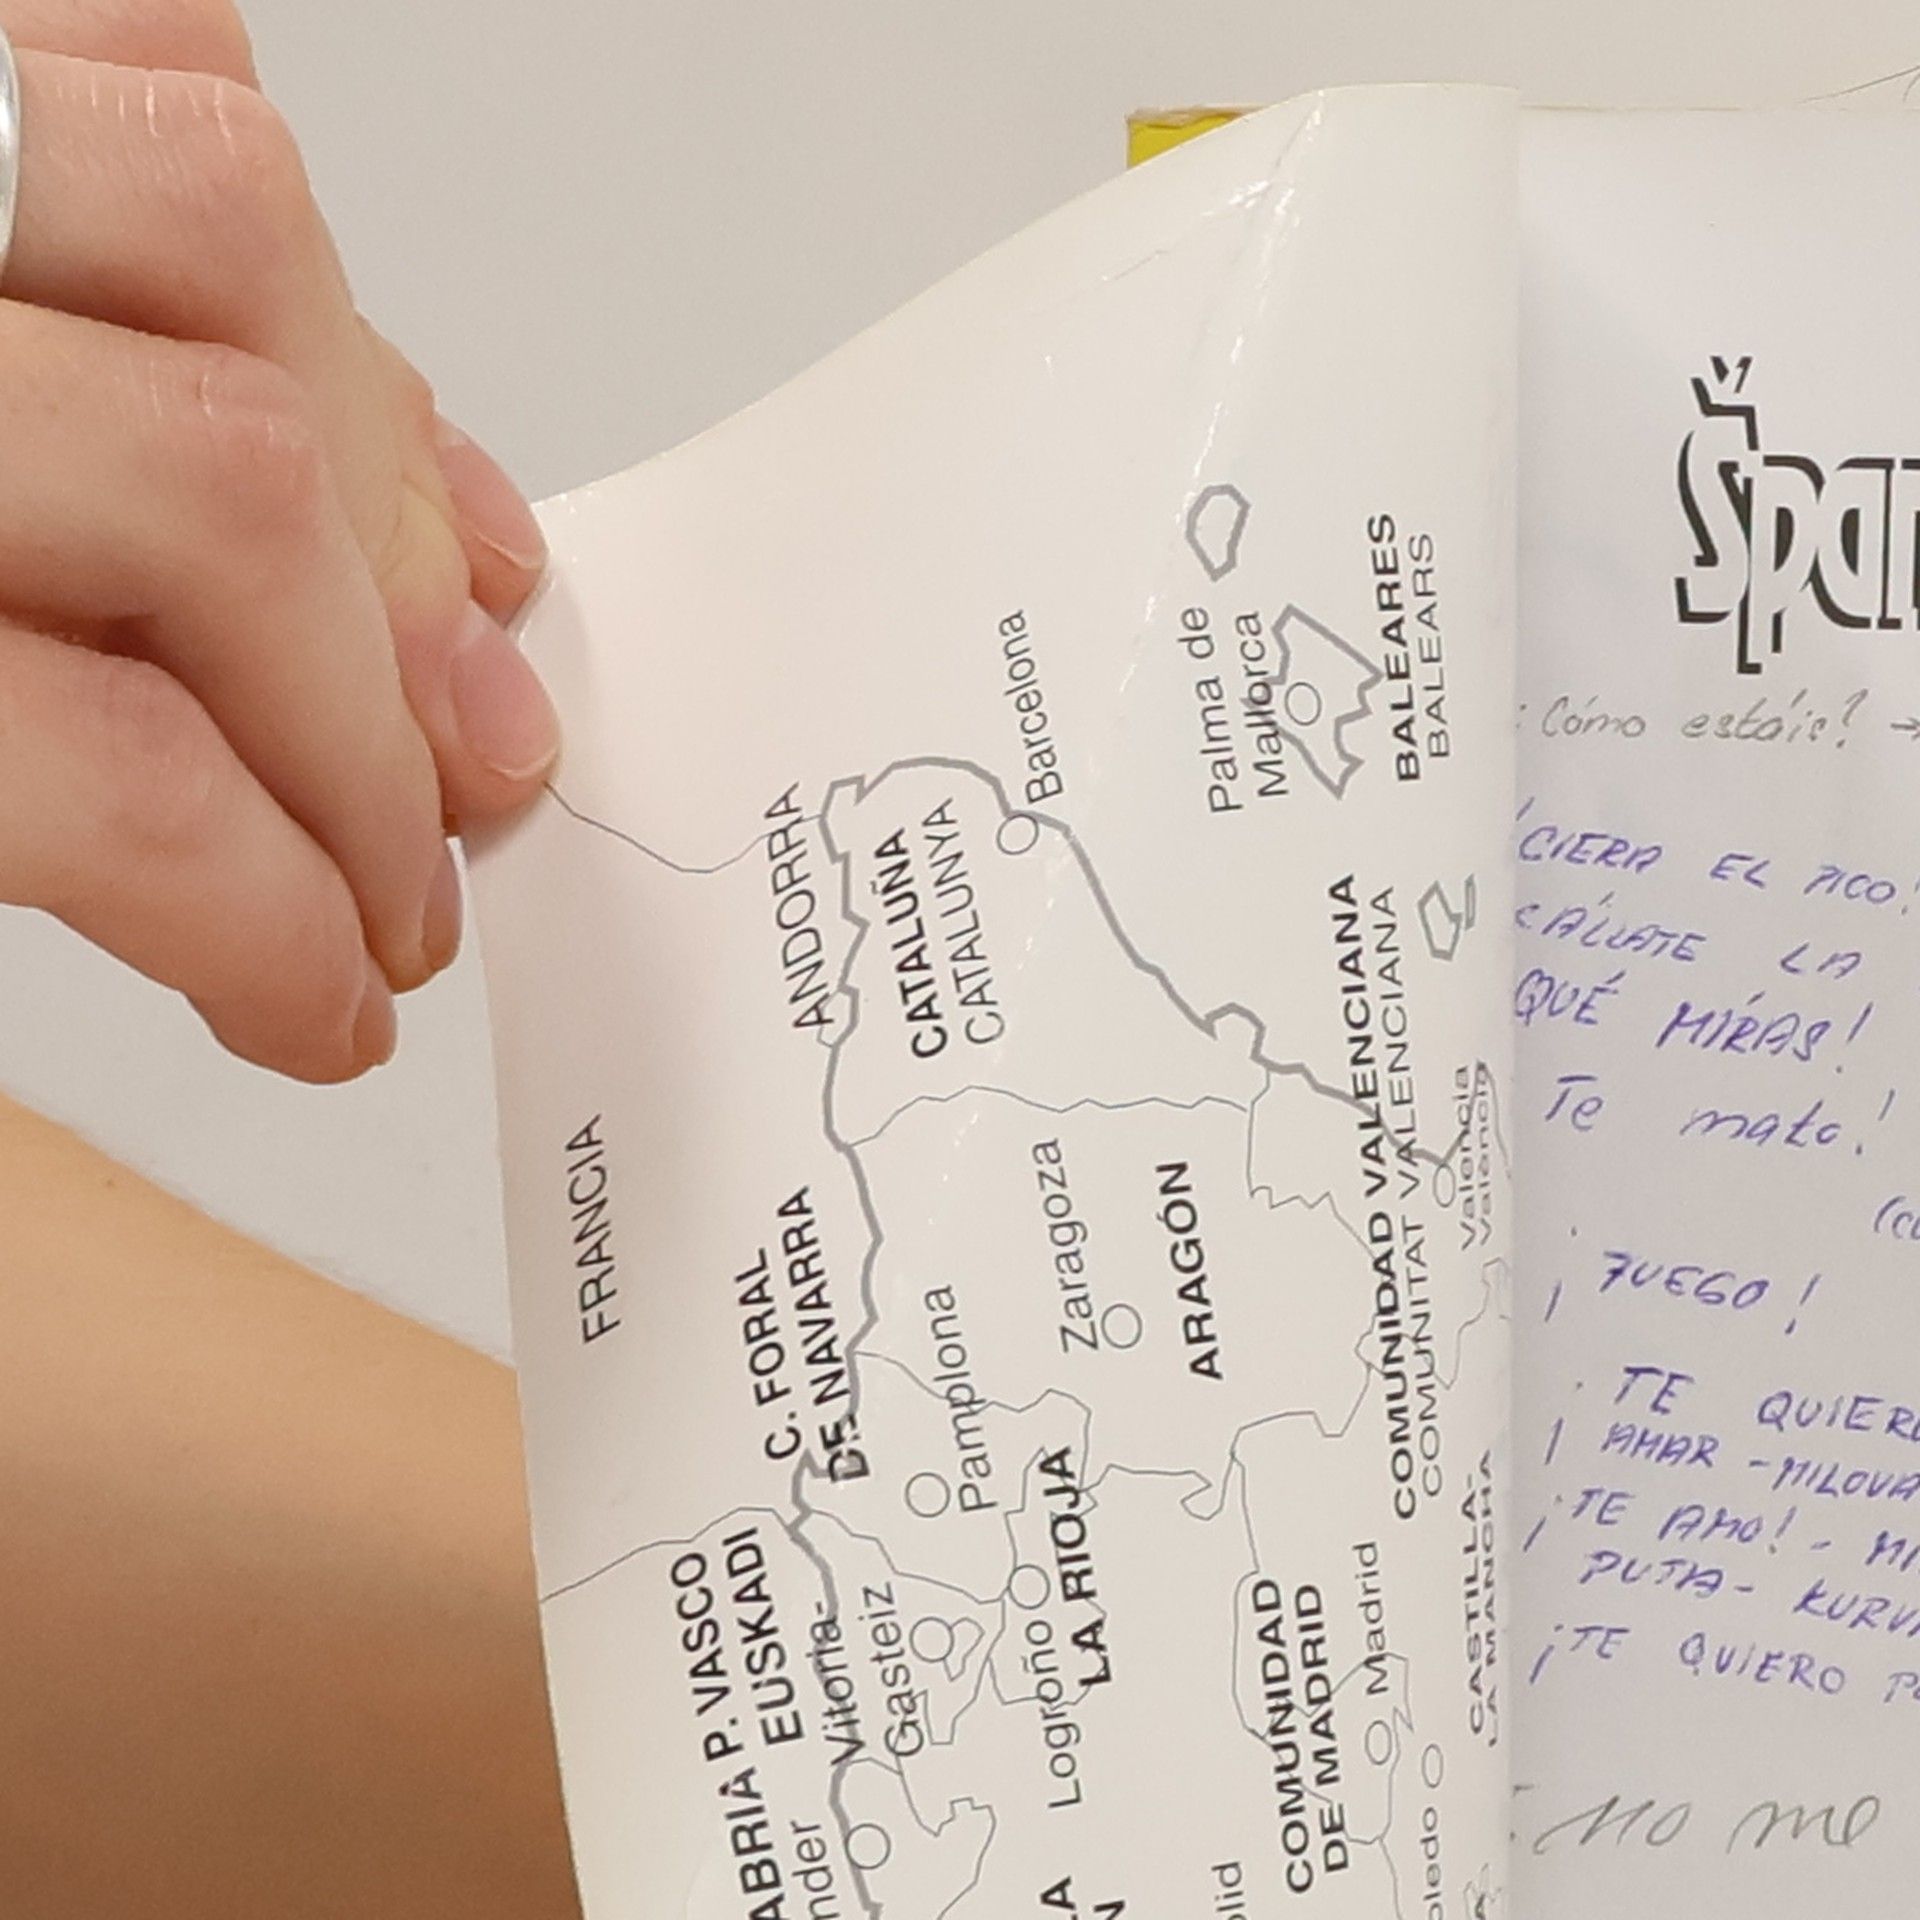 FRANCIA
ANDORRA
CATALUÑA
CATALUNYA
Barcelona
Palma de
Mallorca
BALEARES
BALEARS
C. FORAL
DE NAVARRA
Pamplona
Zaragoza
ARAGÓN
COMUNIDAD VALENCIANA
COMUNITAT VALENCIANA
Valencia
València
P. VASCO
EUSKADI
Vitoria-
Gasteiz
Logroño
LA RIOJA
COMUNIDAD
DE MADRID
Madrid
CASTILLA-
LA MANCHA
ABRIA
nder
LA
N
olid
oledo
Špan
¿Cómo estáis? →
¡CIERA EL PICO!
CÁLLATE LA
QUÉ MIRAS!
Te mato!
¡FUEGO!
¡TE QUIERO
AMAR - MILOVA
¡TE AMO! - MI
PUTA - KURVA
¡TE QUIERO
no me